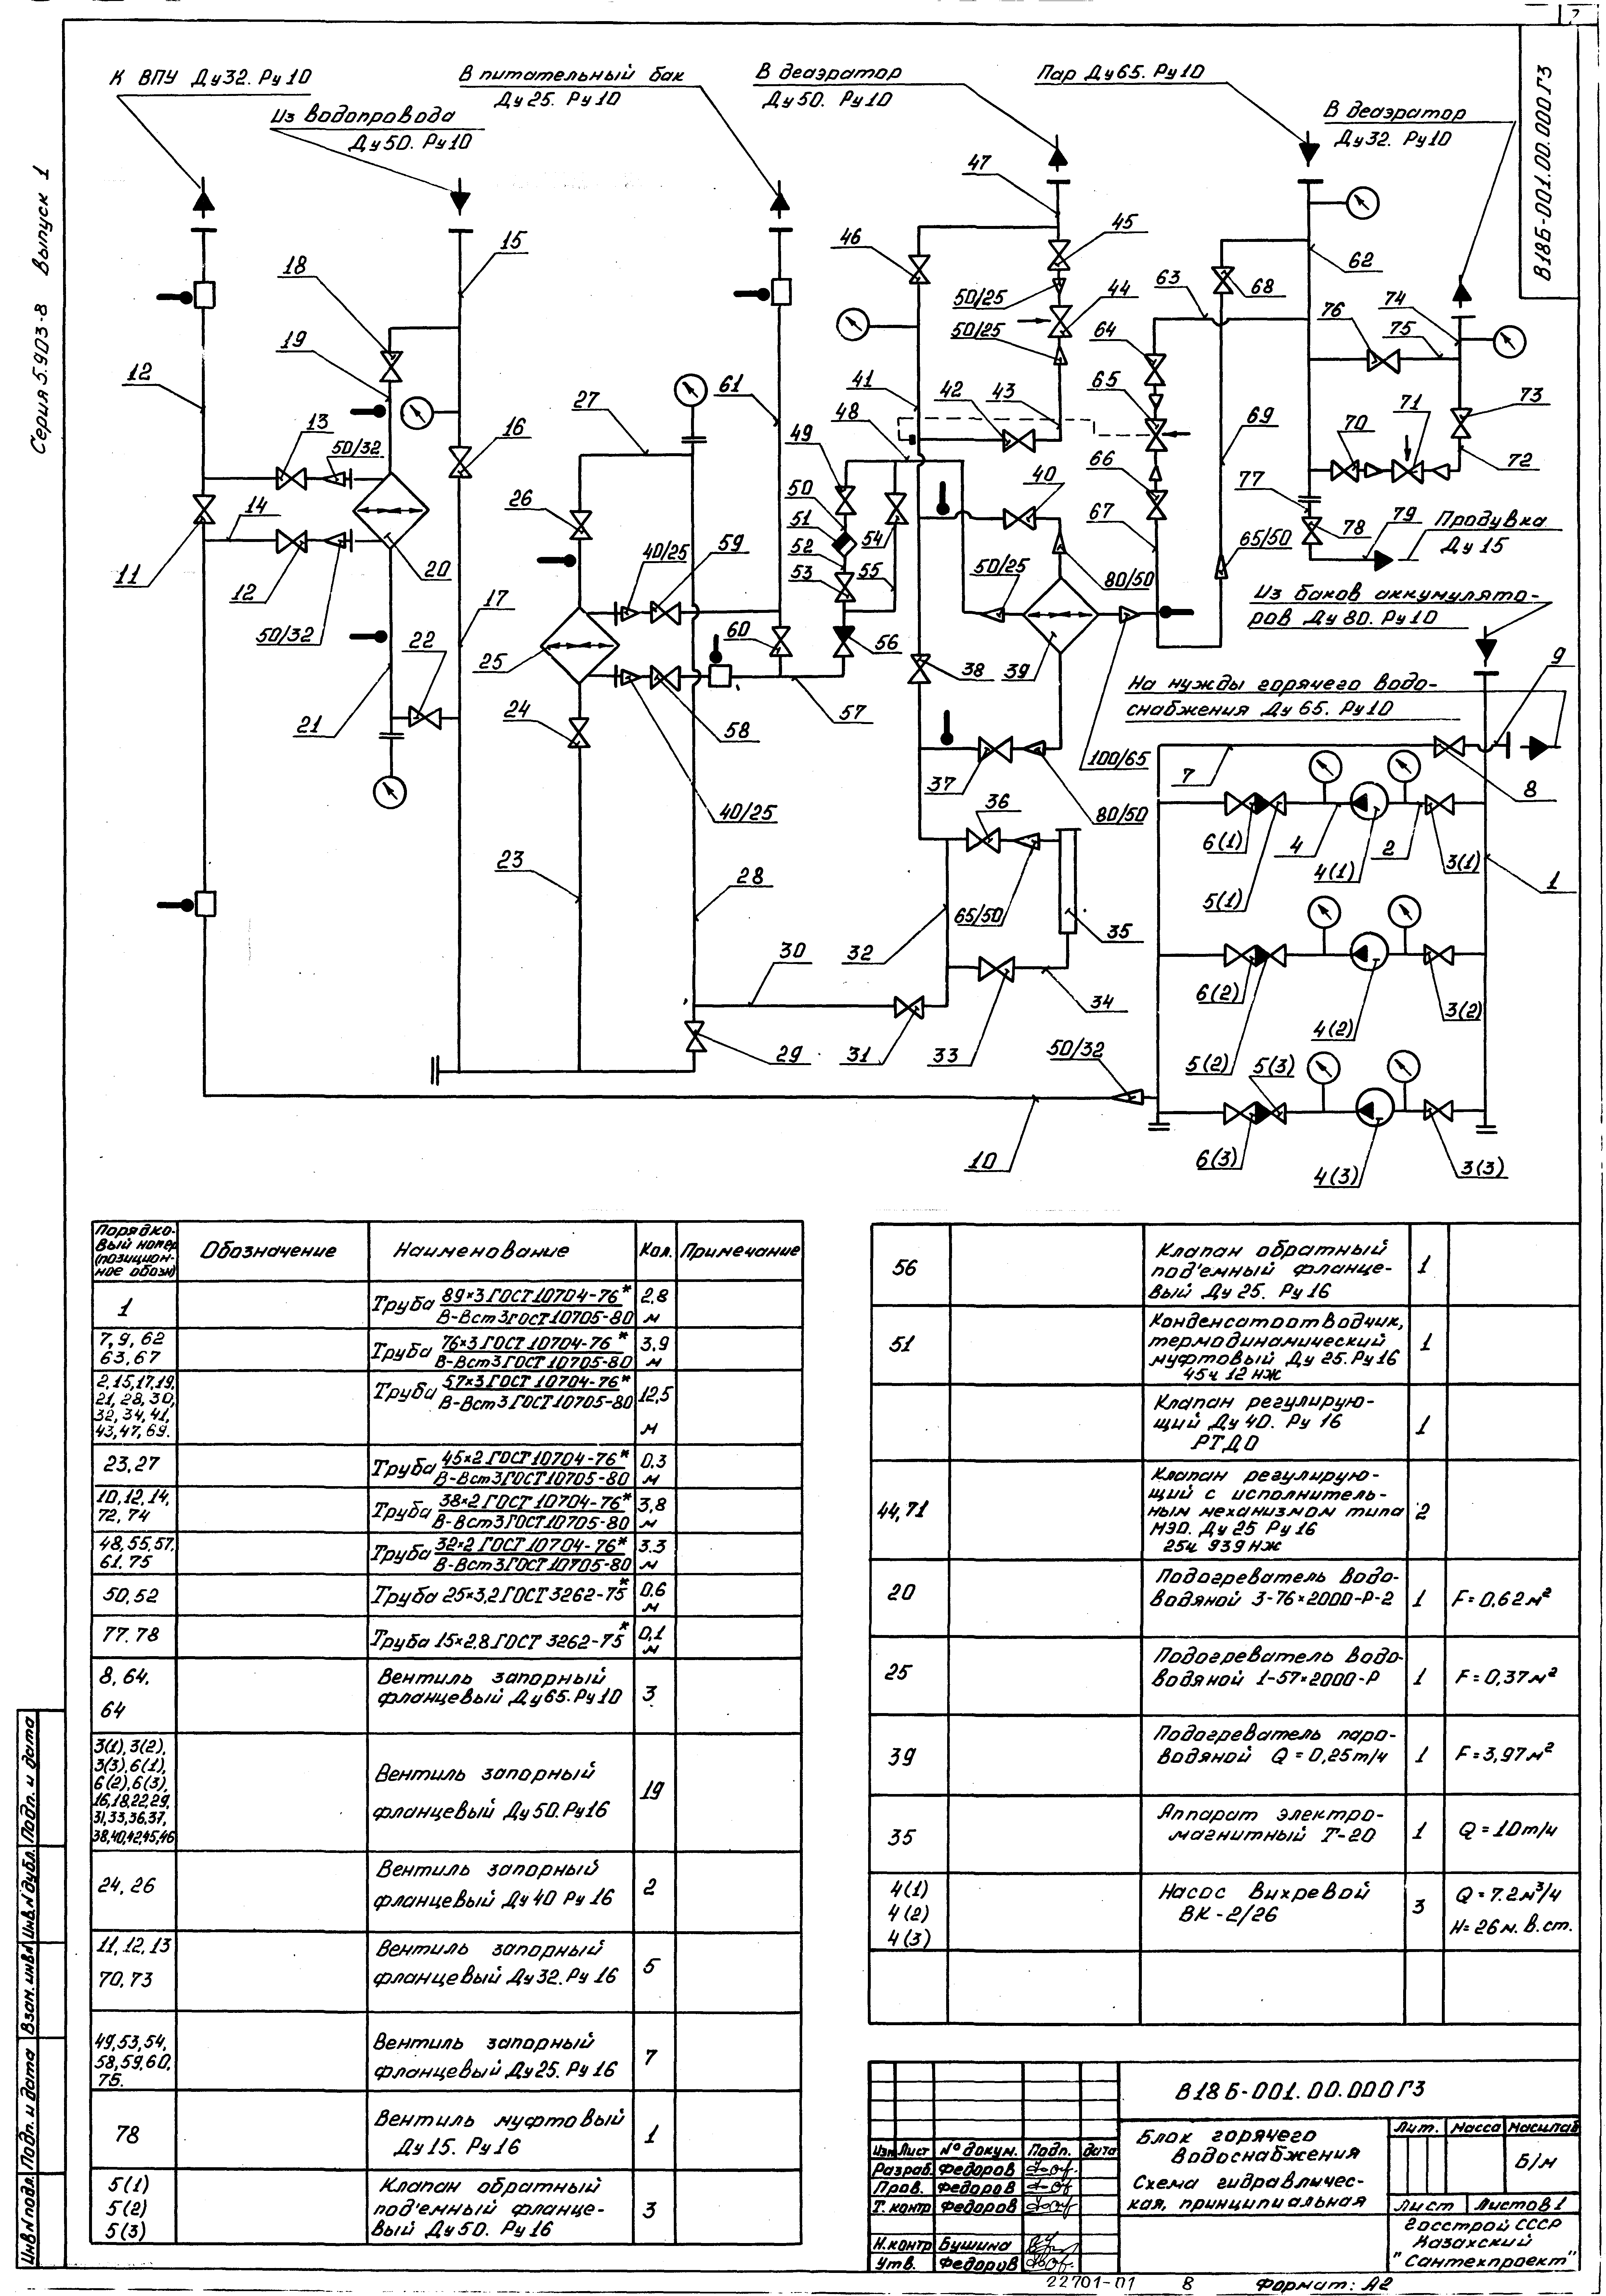 7
Серия 5.903-8 Выпуск 1
В18Б-001.00.000ГЗ
К ВПУ Ду32. Ру10
Из водопровода
Ду50. Ру10
В питательный бак
Ду25. Ру10
В деаэратор
Ду50. Ру10
Пар Ду65. Ру10
В деаэратор
Ду32. Ру10
47
46
45
50/25
44
50/25
62
63
68
64
76
74
75
15
18
19
12
13
50/32
16
27
61
41
42
43
48
49
65
69
70
71
73
72
14
11
12
20
50/32
17
26
40/25
59
50
51
52
53
54
55
40
66
67
77
78
79
Продувка
Ду15
50/25
80/50
65/50
Из баков аккумулято-
ров Ду80. Ру10
22
21
25
24
60
56
38
39
57
58
На нужды горячего водо-
снабжения Ду65. Ру10
9
37
100/65
7
8
40/25
36
80/50
6(1)
4
4(1)
2
3(1)
1
5(1)
23
28
65/50
35
32
30
34
6(2)
4(2)
3(2)
29
31
33
50/32
5(2)
5(3)
10
6(3)
4(3)
3(3)
Порядко-
вый номер
(позицион-
ное обозн)
Обозначение
Наименование
Кол.
Примечание
1
Труба 89×3 ГОСТ 10704-76*
В-Вст3 ГОСТ 10705-80
2,8
м
7, 9, 62
63, 67
Труба 76×3 ГОСТ 10704-76*
В-Вст3 ГОСТ 10705-80
3,9
м
2, 15, 17, 19,
21, 28, 30,
32, 34, 41,
43, 47, 69.
Труба 57×3 ГОСТ 10704-76*
В-Вст3 ГОСТ 10705-80
12,5
м
23, 27
Труба 45×2 ГОСТ 10704-76*
В-Вст3 ГОСТ 10705-80
0,3
м
10, 12, 14,
72, 74
Труба 38×2 ГОСТ 10704-76*
В-Вст3 ГОСТ 10705-80
3,8
м
48, 55, 57,
61. 75
Труба 32×2 ГОСТ 10704-76*
В-Вст3 ГОСТ 10705-80
3.3
м
50, 52
Труба 25×3,2 ГОСТ 3262-75*
0,6
м
77. 78
Труба 15×2,8 ГОСТ 3262-75*
0,1
м
8, 64,
64
Вентиль запорный
фланцевый Ду65. Ру10
3
3(1), 3(2),
3(3), 6(1),
6(2), 6(3),
16,18,22,29,
31,33,36,37,
38,40,42,45,46
Вентиль запорный
фланцевый Ду50. Ру16
19
24, 26
Вентиль запорный
фланцевый Ду40 Ру16
2
11, 12, 13
70, 73
Вентиль запорный
фланцевый Ду32. Ру16
5
49, 53, 54,
58, 59, 60,
75.
Вентиль запорный
фланцевый Ду25. Ру16
7
78
Вентиль муфтовый
Ду15. Ру16
1
5(1)
5(2)
5(3)
Клапан обратный
под'емный фланце-
вый Ду50. Ру16
3
56
Клапан обратный
под'емный фланце-
вый Ду25. Ру16
1
51
Конденсатоотводчик,
термодинамический
муфтовый Ду25. Ру16
45ч 12 нж
1
Клапан регулирую-
щий Ду40. Ру16
РТДО
1
44, 71
Клапан регулирую-
щий с исполнитель-
ным механизмом типа
МЭО. Ду25 Ру16
25ч 939 нж
2
20
Подогреватель водо-
водяной 3-76×2000-Р-2
1
F=0,62 м²
25
Подогреватель водо-
водяной 1-57×2000-Р
1
F=0,37 м²
39
Подогреватель паро-
водяной Q=0,25 т/ч
1
F=3,97 м²
35
Аппарат электро-
магнитный Т-20
1
Q=10 т/ч
4(1)
4(2)
4(3)
Насос вихревой
ВК-2/26
3
Q=7.2 м³/ч
Н=26 м. в. ст.
В18Б-001.00.000ГЗ
Блок горячего
водоснабжения
Схема гидравличес-
кая, принципиальная
Лит. Масса Масштаб
Б/м
Лист Листов 1
Госстрой СССР
Казахский
"Сантехпроект"
Изм Лист № докум. Подп. дата
Разраб. Федоров
Пров. Федоров
Т. контр Федоров
Н. контр Бушина
Утв. Федоров
Инв.№ подл. Подп. и дата Взам. инв.№ Инв.№ дубл. Подп. и дата
22701-01 8 Формат: А2